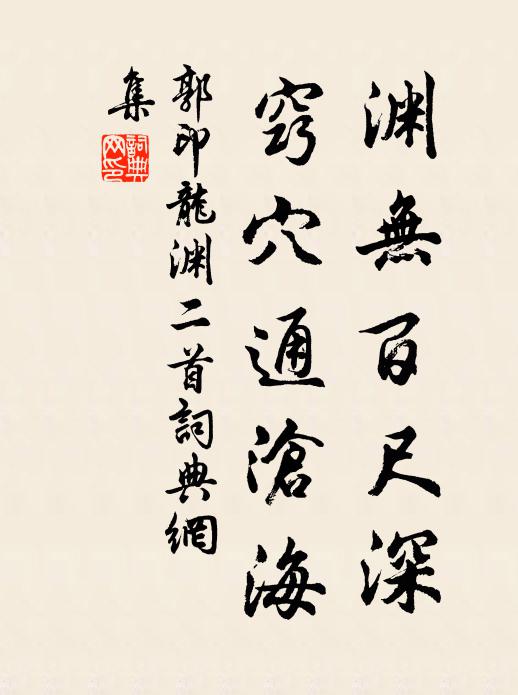 渊無百尺深
竅穴通滄海
郭印龍渊二首詞典網
集
詞典網印